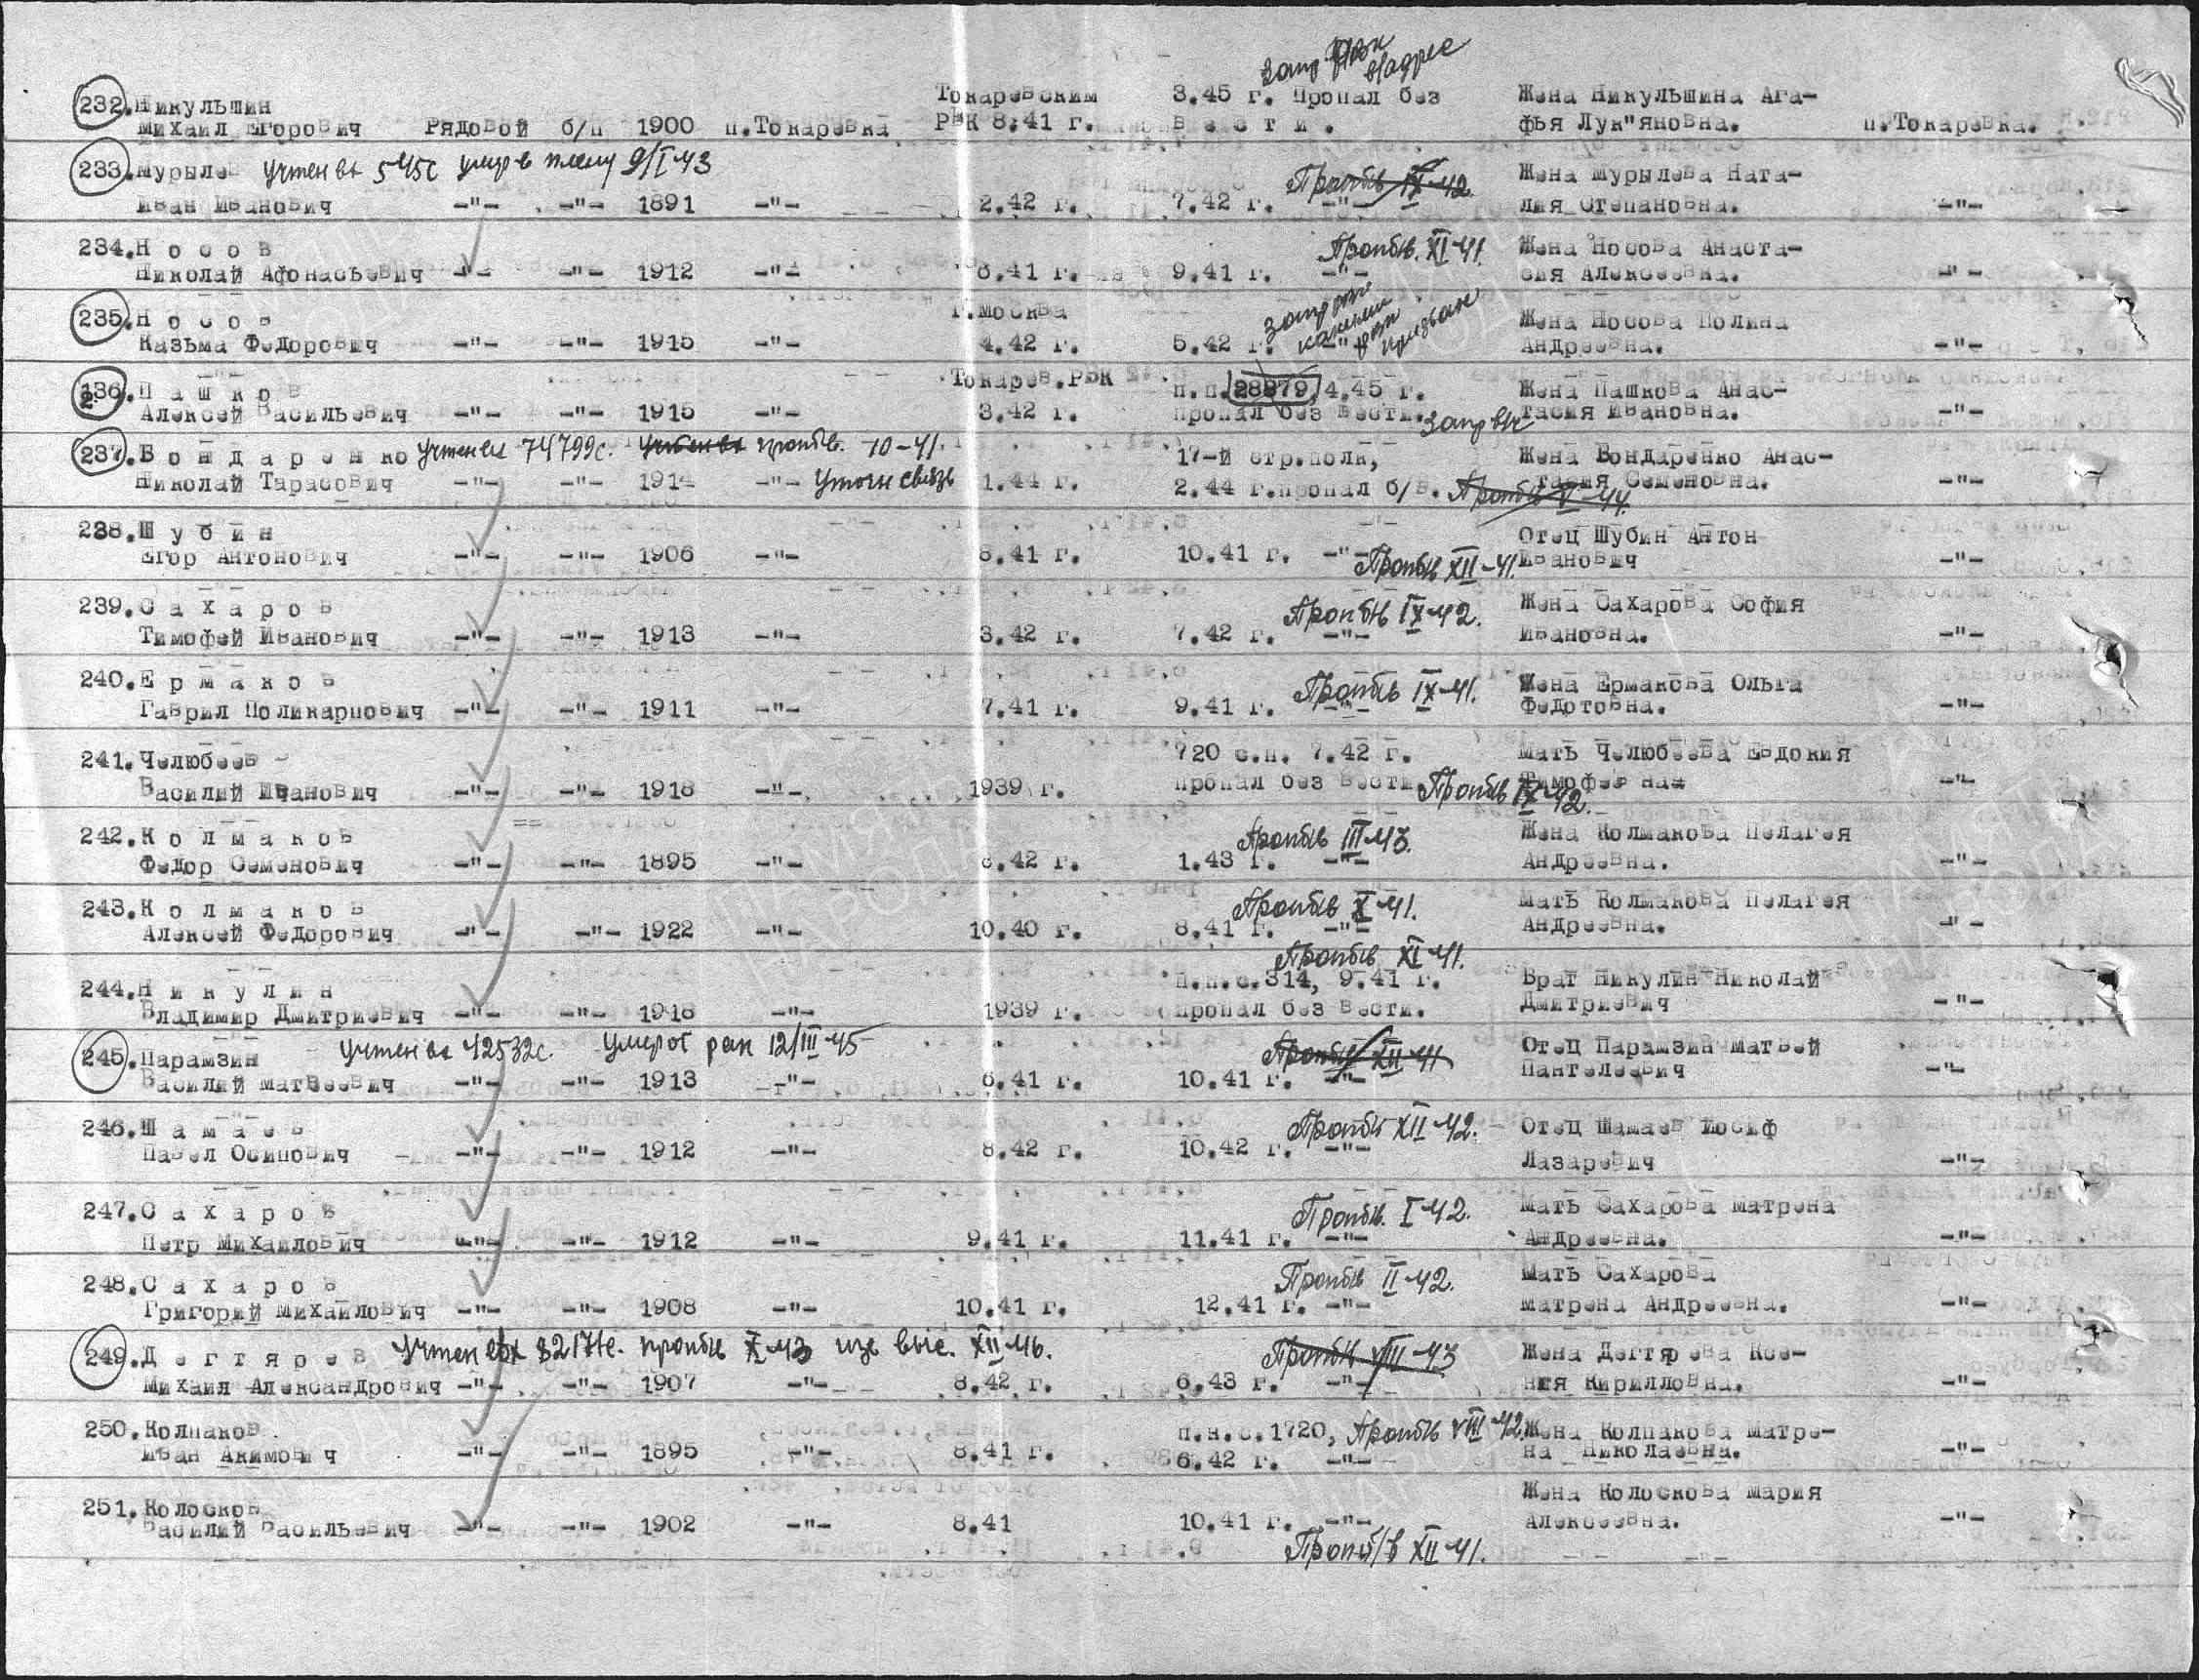 Запр РВК в/адрес
232.Никульшин Токаревским 3.45 г. пропал без Жена Никульшина Ага-
Михаил Егорович Рядовой б/п 1900 п.Токаревка РВК 8.41 г. вести. фья Лук"яновна. п.Токаревка.
233.Мурылев Учтен вх 545с умер в плену 9/I-43 Проп б/в IX-42 Жена Мурылева Ната-
Иван Иванович -"- -"- 1891 -"- 2.42 г. 7.42 г. -"- лия Степановна. -"-
234.Н о с о в Проп б/в. XI-41. Жена Носова Анаста-
Николай Афонасьевич -"- -"- 1912 -"- 6.41 г. 9.41 г. -"- сия Алексеевна. -"-
235.Н о с о в г.Москва Жена Носова Полина
Казьма Федорович -"- -"- 1915 -"- 4.42 г. 5.42 г. -"- каким рвк призван Андреевна. -"-
236.П а ш к о в Токарев.РВК п.п.28879,4.45 г. Жена Пашкова Анас-
Алексей Васильевич -"- -"- 1915 -"- 3.42 г. пропал без вести. тасия Ивановна. -"-
237.Б о н д а р е н к о Учтен вх 74799с. проп б/в. 10-41. 17-й стр.полк, Жена Бондаренко Анас-
Николай Тарасович -"- -"- 1914 -"- Уточн связь 1.44 г. 2.44 г.пропал б/в. Проп б/в V-44. тасия Семеновна. -"-
238.Ш у б и н Отец Шубин Антон
Егор Антонович -"- -"- 1906 -"- 8.41 г. 10.41 г. -"- Проп б/в XII-41. Иванович -"-
239.С а х а р о в Проп б/в IX-42. Жена Сахарова София
Тимофей Иванович -"- -"- 1913 -"- 3.42 г. 7.42 г. -"- Ивановна. -"-
240.Е р м а к о в Проп б/в IX-41. Жена Ермакова Ольга
Гаврил Поликарпович -"- -"- 1911 -"- 7.41 г. 9.41 г. -"- Федотовна. -"-
241.Челюбеев 720 с.п. 7.42 г. Мать Челюбеева Евдокия
Василий Иванович -"- -"- 1918 -"- 1939 г. пропал без вести Проп б/в IX-42. Тимофеевна -"-
242.К о л м а к о в Проп б/в III-43. Жена Колмакова Пелагея
Федор Семенович -"- -"- 1895 -"- 8.42 г. 1.43 г. -"- Андреевна. -"-
243.К о л м а к о в Проп б/в X-41. Мать Колмакова Пелагея
Алексей Федорович -"- -"- 1922 -"- 10.40 г. 8.41 г. -"- Андреевна. -"-
Проп б/в XI-41.
244.Н и к у л и н п.п.с.314, 9.41 г. Брат Никулин Николай
Владимир Дмитриевич -"- -"- 1918 -"- 1939 г. пропал без вести. Дмитриевич -"-
245.Парамзин Учтен вх 42532с. умер от ран 12/III-45 Проп б/в XII-41 Отец Парамзин Матвей
Василий Матвеевич -"- -"- 1913 -"- 6.41 г. 10.41 г. -"- Пантелеевич -"-
246.Ш а м а е в Проп б/в XII-42. Отец Шамаев Иосиф
Павел Осипович -"- -"- 1912 -"- 8.42 г. 10.42 г. -"- Лазаревич -"-
247.С а х а р о в Проп б/в. I-42. Мать Сахарова Матрена
Петр Михайлович -"- -"- 1912 -"- 9.41 г. 11.41 г. -"- Андреевна. -"-
248.С а х а р о в Проп б/в II-42. Мать Сахарова
Григорий Михайлович -"- -"- 1908 -"- 10.41 г. 12.41 г. -"- Матрена Андреевна. -"-
249.Д е г т я р е в Учтен вх проп б/в X-43 XII-46. Проп б/в VIII-43 Жена Дегтярева Ксе-
Михаил Александрович -"- -"- 1907 -"- 8.42 г. 6.43 г. -"- ния Кирилловна. -"-
250.Колпаков п.п.с.1720, Проп б/в VIII-42. Жена Колпакова Матре-
Иван Акимович -"- -"- 1895 -"- 8.41 г. 6.42 г. -"- на Николаевна. -"-
251.Колосков Жена Колоскова Мария
Василий Васильевич -"- -"- 1902 -"- 8.41 10.41 г. -"- Алексеевна. -"-
Проп б/в XII-41.